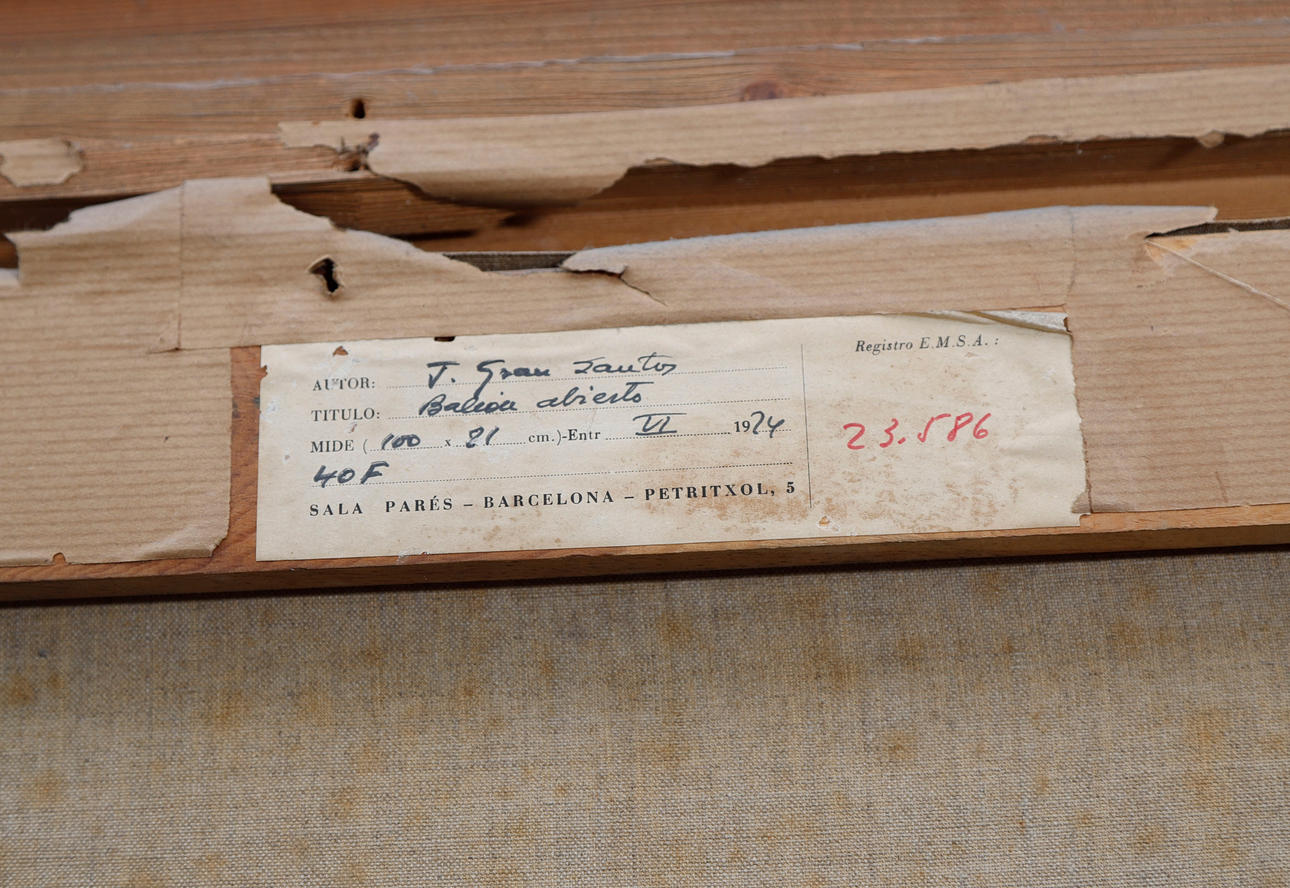 AUTOR: J. Gran Santos
TITULO: Balcón abierto
MIDE ( 100 x 81 cm.)-Entr VI 1974
40F
SALA PARÉS – BARCELONA – PETRITXOL, 5
Registro E.M.S.A. :
23.586